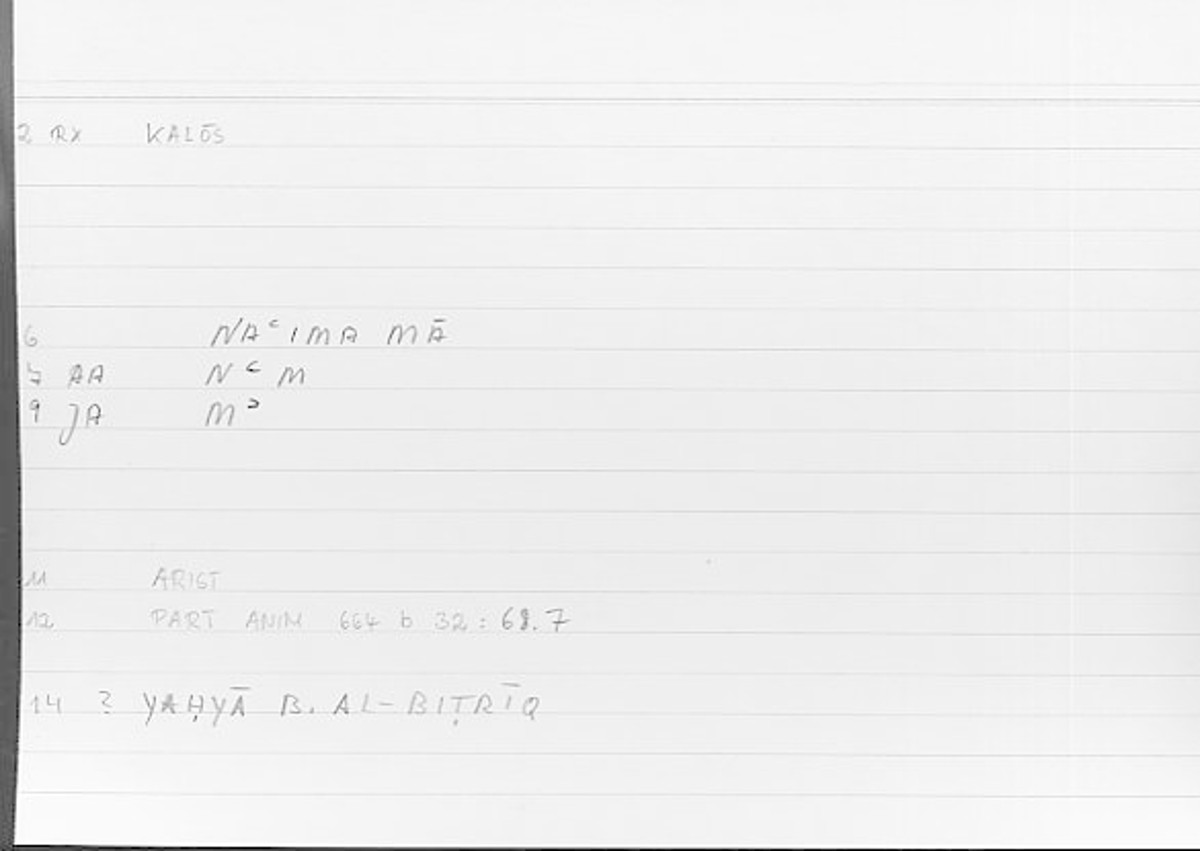 2 RX KALŌS
6 NAʿIMA MĀ
7 AA NʿM
9 JA Mʾ
11 ARIST
12 PART ANIM 664 b 32 : 68.7
14 ? YAḤYĀ B. AL-BIṬRĪQ